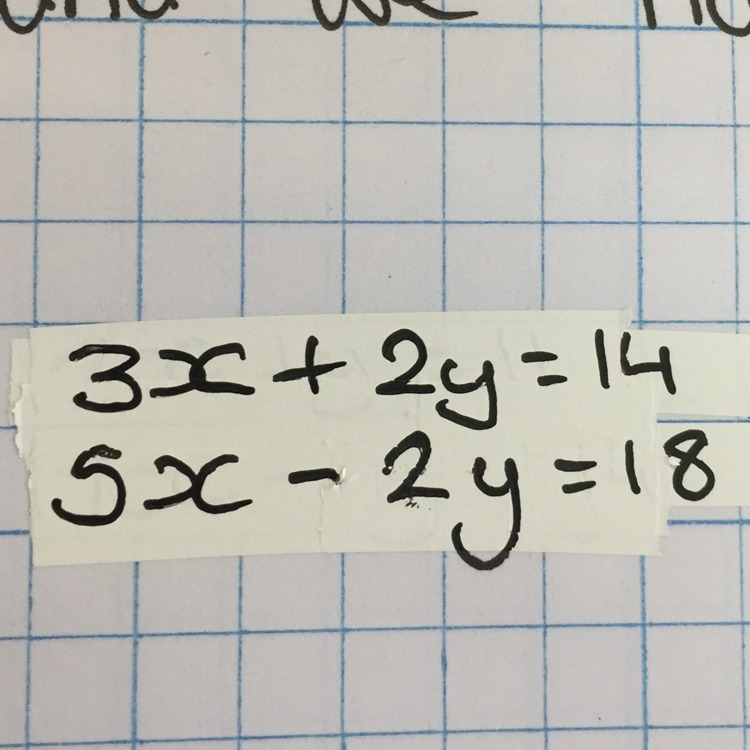 3x + 2y = 14
5x - 2y = 18